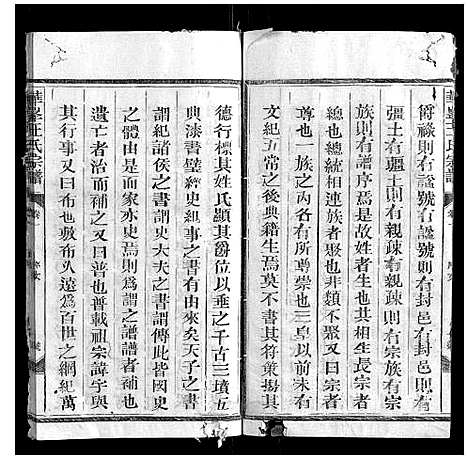 爵祿則有諡號則有封邑有封邑則有
疆土有疆土則有親疎有親疎則有宗族有宗
族則有譜序焉是故姓者生也其相生長宗者
總也總統相連族者聚也非類不聚又曰宗者
尊也一族之內各有所尊崇也三皇以前未有
文紀五常之後典籍生焉莫不書其符策揚其
德行標其姓氏顯其爵位以垂之千古三墳五
典漆書壁經史紀事之書有由來矣天子之書
謂紀諸侯之書謂史大夫之書謂傳此皆國史
之體由是而家亦史焉則為謂之譜譜者補也
遺亡者治而補之又曰普也普載祖宗諱字與
其行事又曰布也敷布久遠為百世之綱紀萬
華峯王氏宗譜
卷一